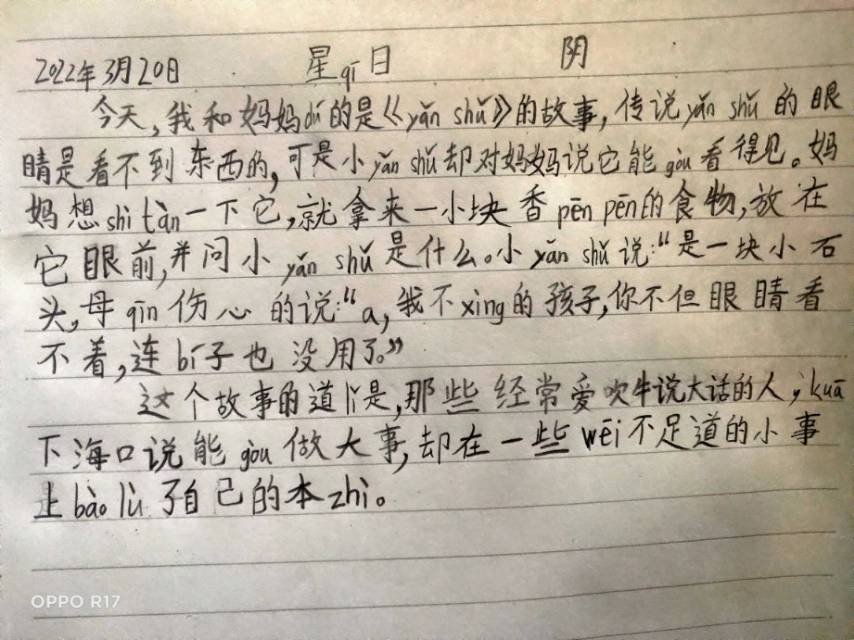 2022年3月20日 星qī日 阴
今天,我和妈妈dú的是《yǎn shǔ》的故事,传说yǎn shǔ的眼
睛是看不到东西的,可是小yǎn shǔ却对妈妈说它能gòu看得见。妈
妈想shì tàn一下它,就拿来一小块香pēn pēn的食物,放在
它眼前,并问小yǎn shǔ是什么。小yǎn shǔ说:“是一块小石
头,母qīn伤心的说:“a,我不xìng的孩子,你不但眼睛看
不着,连bí子也没用了。”
这个故事的道lǐ是,那些经常爱吹牛说大话的人,kuā
下海口说能gòu做大事,却在一些wēi不足道的小事
上bào lù了自己的本zhì。
OPPO R17